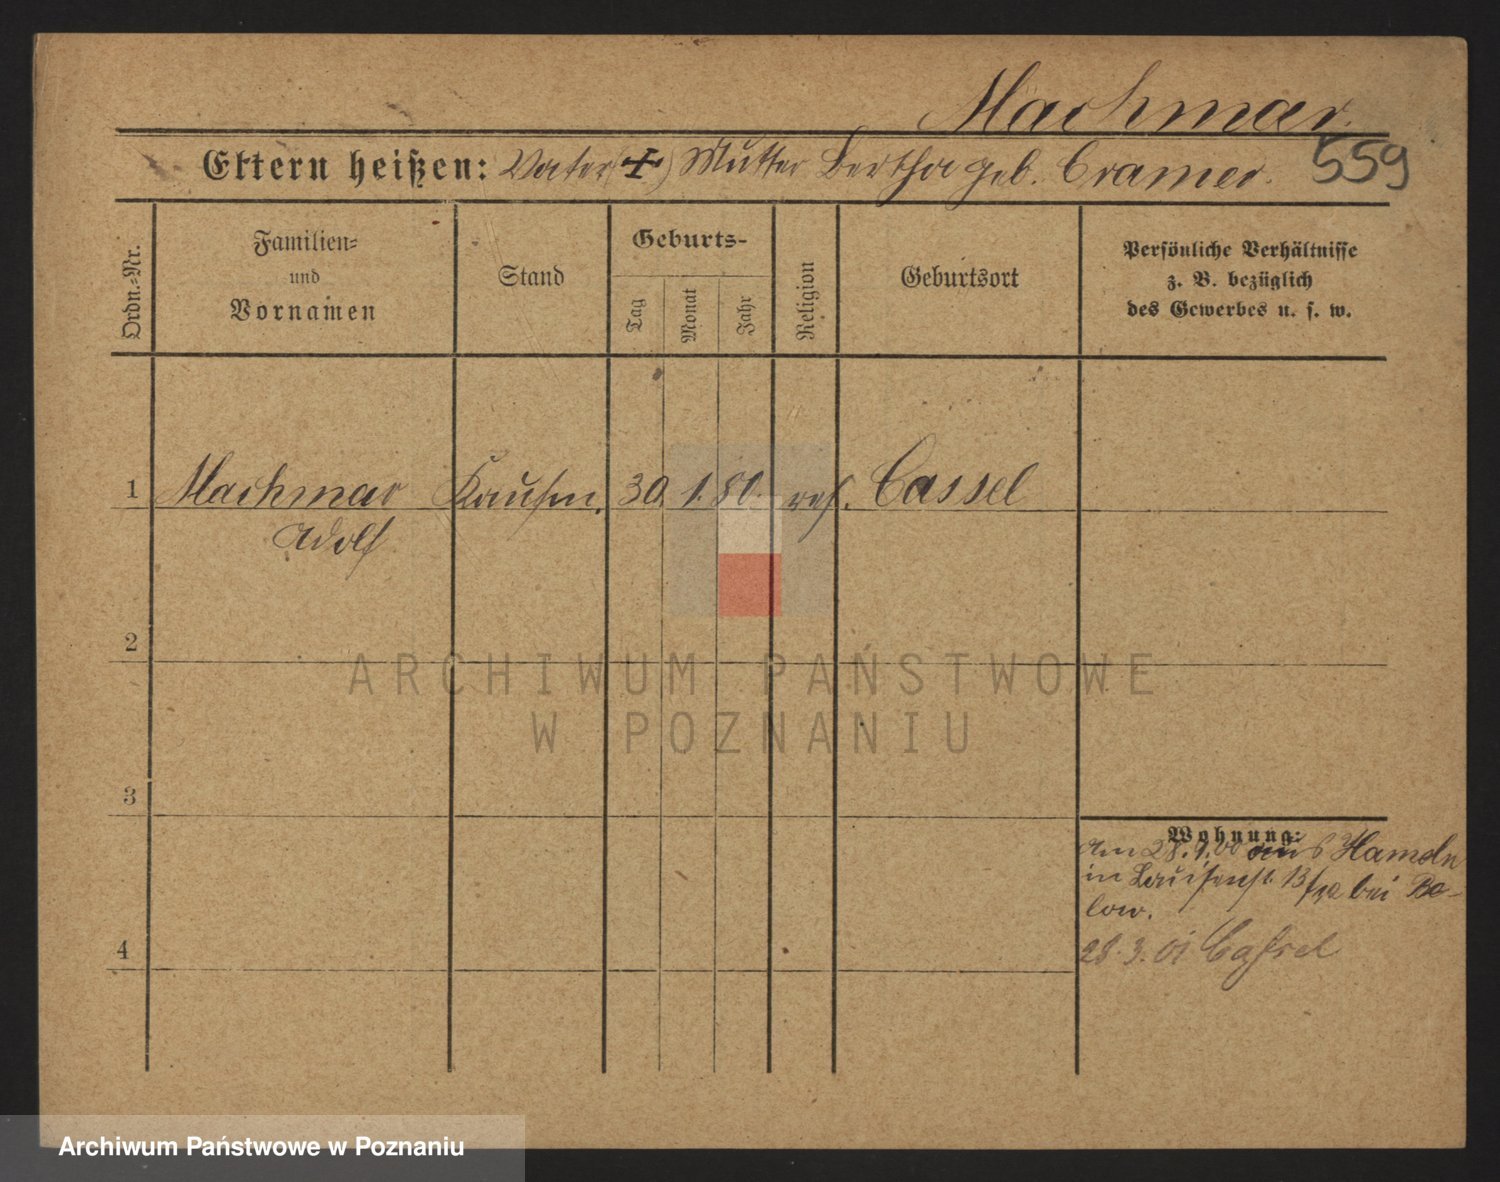 Machmar
Eltern heißen: Vater (+) Mutter Bertha geb. Cramer. 559
Ordn.-Nr.
Familien-
und
Vornamen
Stand
Geburts-
Tag
Monat
Jahr
Religion
Geburtsort
Persönliche Verhältnisse
z. B. bezüglich
des Gewerbes u. s. w.
1 Machmar Kaufm. 30. 1. 80. ref. Cassel
Adolf
2
3
4
Wohnung:
Am 28.1.00 aus Hameln
in Louisenst. bei Be-
low.
28.3.01 Cassel
ARCHIWUM PAŃSTWOWE
W POZNANIU
Archiwum Państwowe w Poznaniu